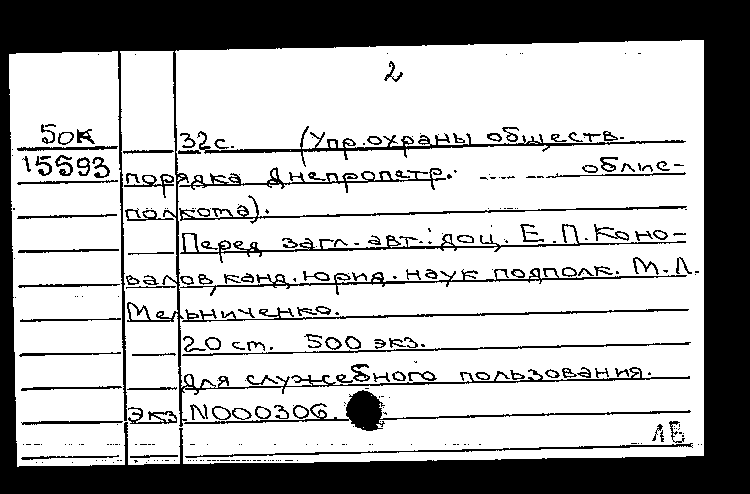 2
50к
15593
32с. (Упр. охраны обществ.
порядка Днепропетр. облис-
полкома).
Перед загл. авт.: доц. Е.П. Коно-
валов, канд. юрид. наук подполк. М.Л.
Мельниченко.
20 ст. 500 экз.
Для служебного пользования.
Экз. N000306.
1В